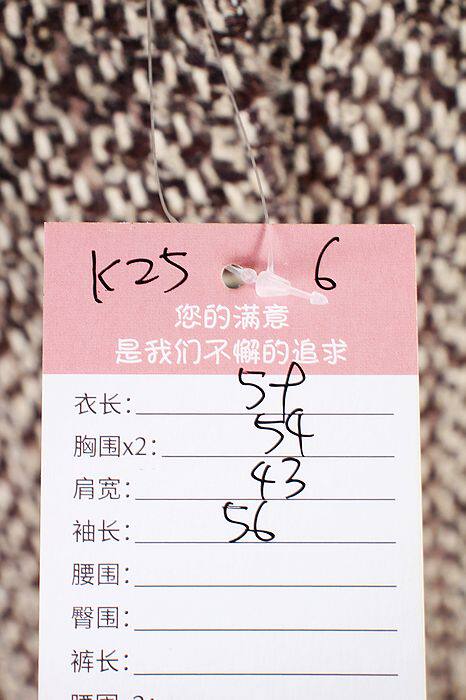 K25 6
您的满意
是我们不懈的追求
衣长: 59
胸围x2: 54
肩宽: 43
袖长: 56
腰围:
臀围:
裤长: